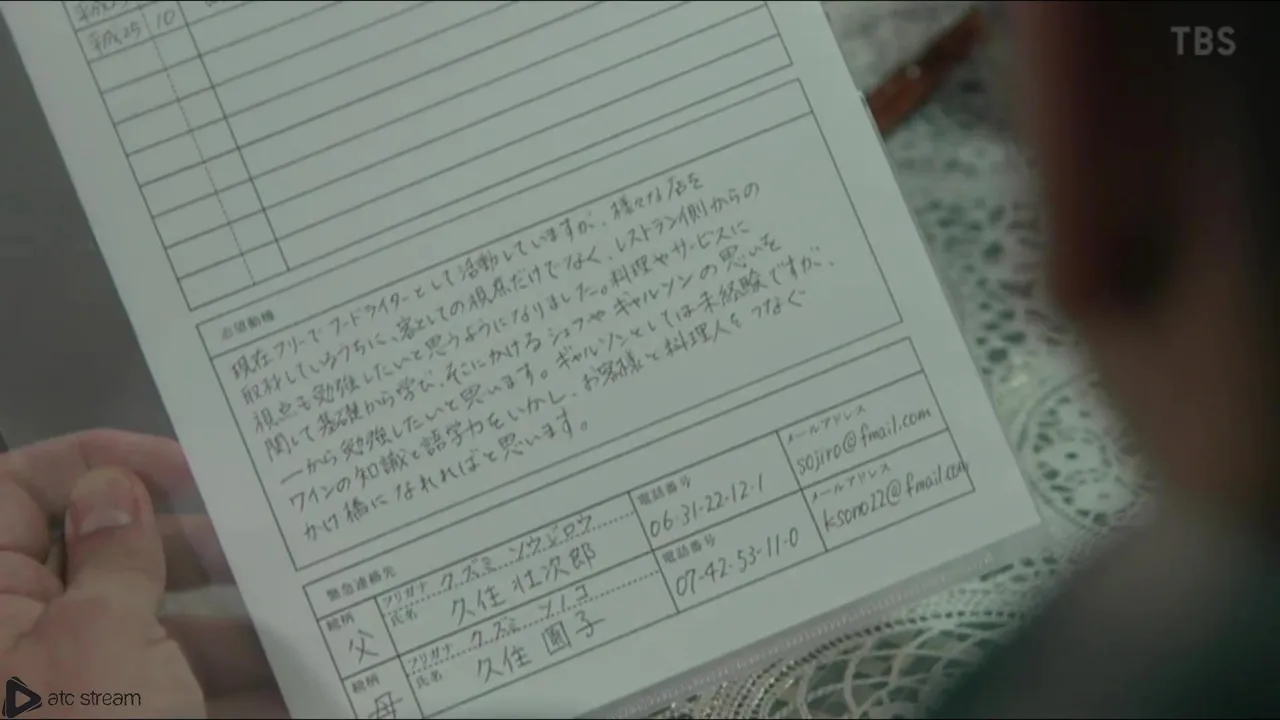 TBS
平成25 10
志望動機
現在フリーでフードライターとして活動していますが、様々な店を
取材しているうちに、客としての視点だけでなく、レストラン側からの
視点も勉強したいと思うようになりました。料理やサービスに
関して基礎から学び、そこにかけるシェフやギャルソンの思いを
一から勉強したいと思います。ギャルソンとしては未経験ですが、
ワインの知識と語学力をいかし、お客様と料理人をつなぐ
かけ橋になれればと思います。
緊急連絡先
続柄 フリガナ クズミ ソウジロウ 電話番号 メールアドレス
父 氏名 久住 壮次郎 06-31-22-12-1 sojiro@fmail.com
続柄 フリガナ クズミ ソノコ 電話番号 メールアドレス
母 氏名 久住 園子 07-42-53-11-0 ksono22@fmail.com
atc stream